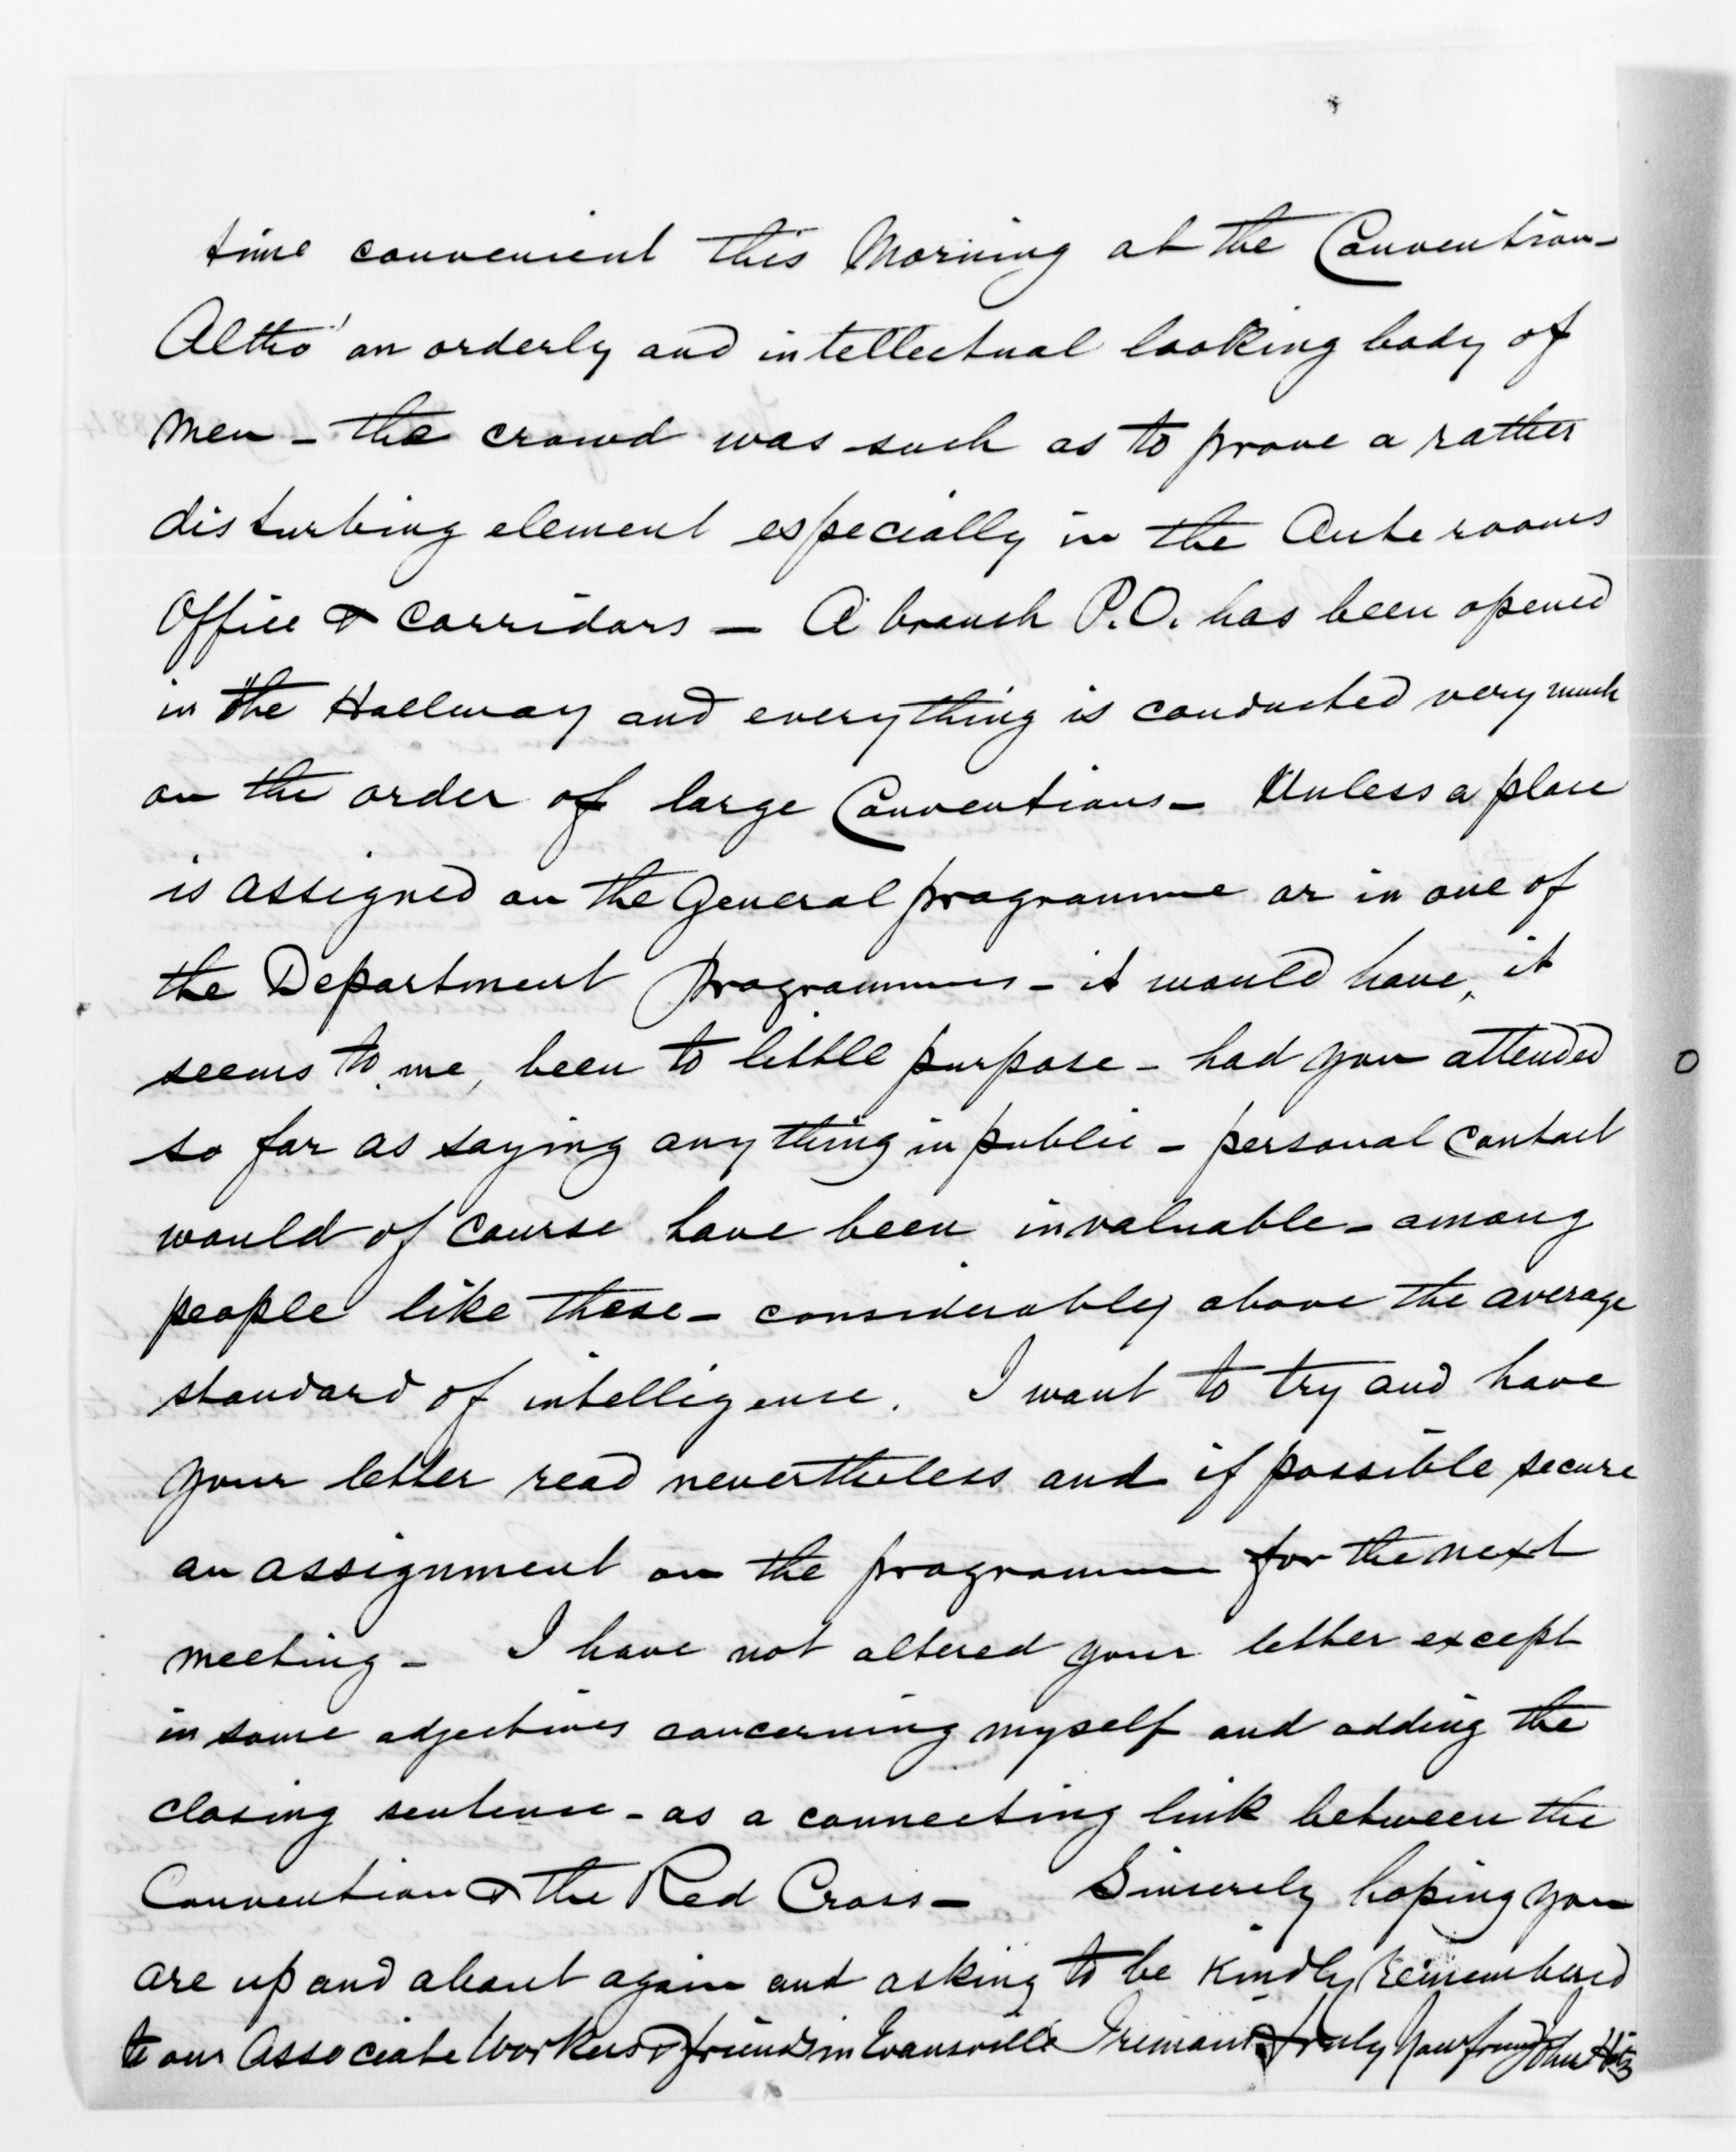 time convenient this Morning at the Convention-
Altho' an orderly and intellectual looking body of
men - the crowd was such as to prove a rather
disturbing element especially in the Ante rooms
Office & Corridors - A branch P.O. has been opened
in the Hallway and everything is conducted very much
on the order of large Conventions - Unless a place
is assigned on the General programme or in one of
the Department Programmes - it would have, it
seems to me, been to little purpose - had you attended
so far as saying anything in public - personal contact
would of course have been invaluable - among
people like these - considerably above the average
standard of intelligence. I want to try and have
your letter read nevertheless and if possible secure
an assignment on the programme for the next
meeting - I have not altered your letter except
in some adjectives concerning myself and adding the
closing sentence - as a connecting link between the
Convention & the Red Cross - Sincerely hoping you
are up and about again and asking to be kindly remembered
to our Associate Workers & friends in Evansville I remain truly Your friend John Hitz